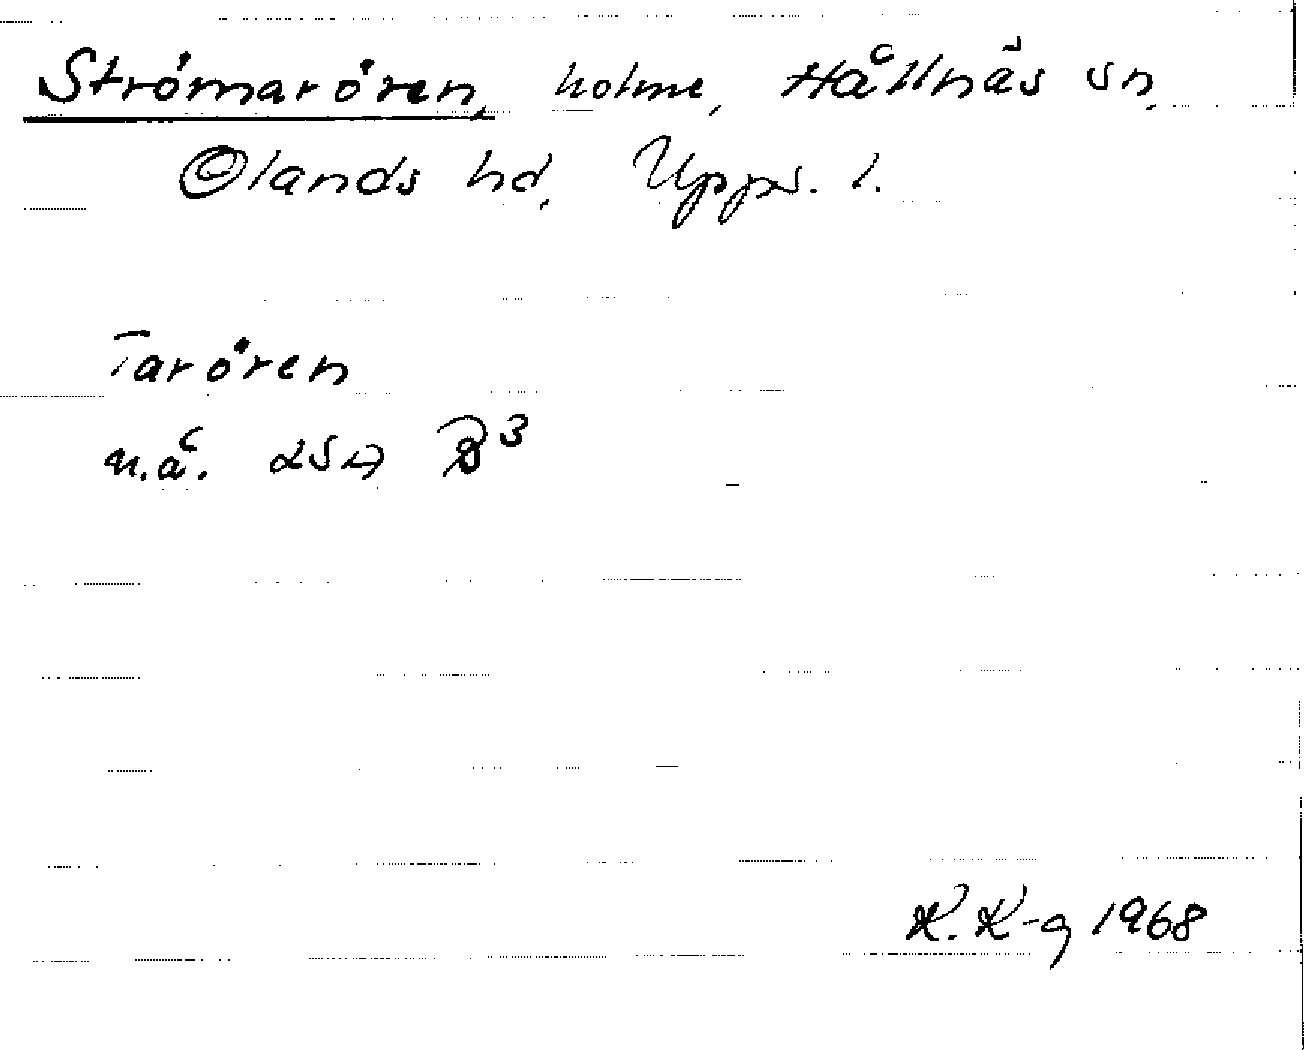 Strömarören, holme, Hållnäs sn,
Olands hd, Upps. l.
Tarören
n.å. LSA B³
K. K-g 1968